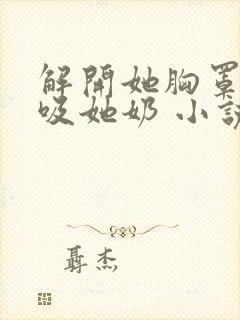 解開她胸罩
吸她奶 小說
聶杰